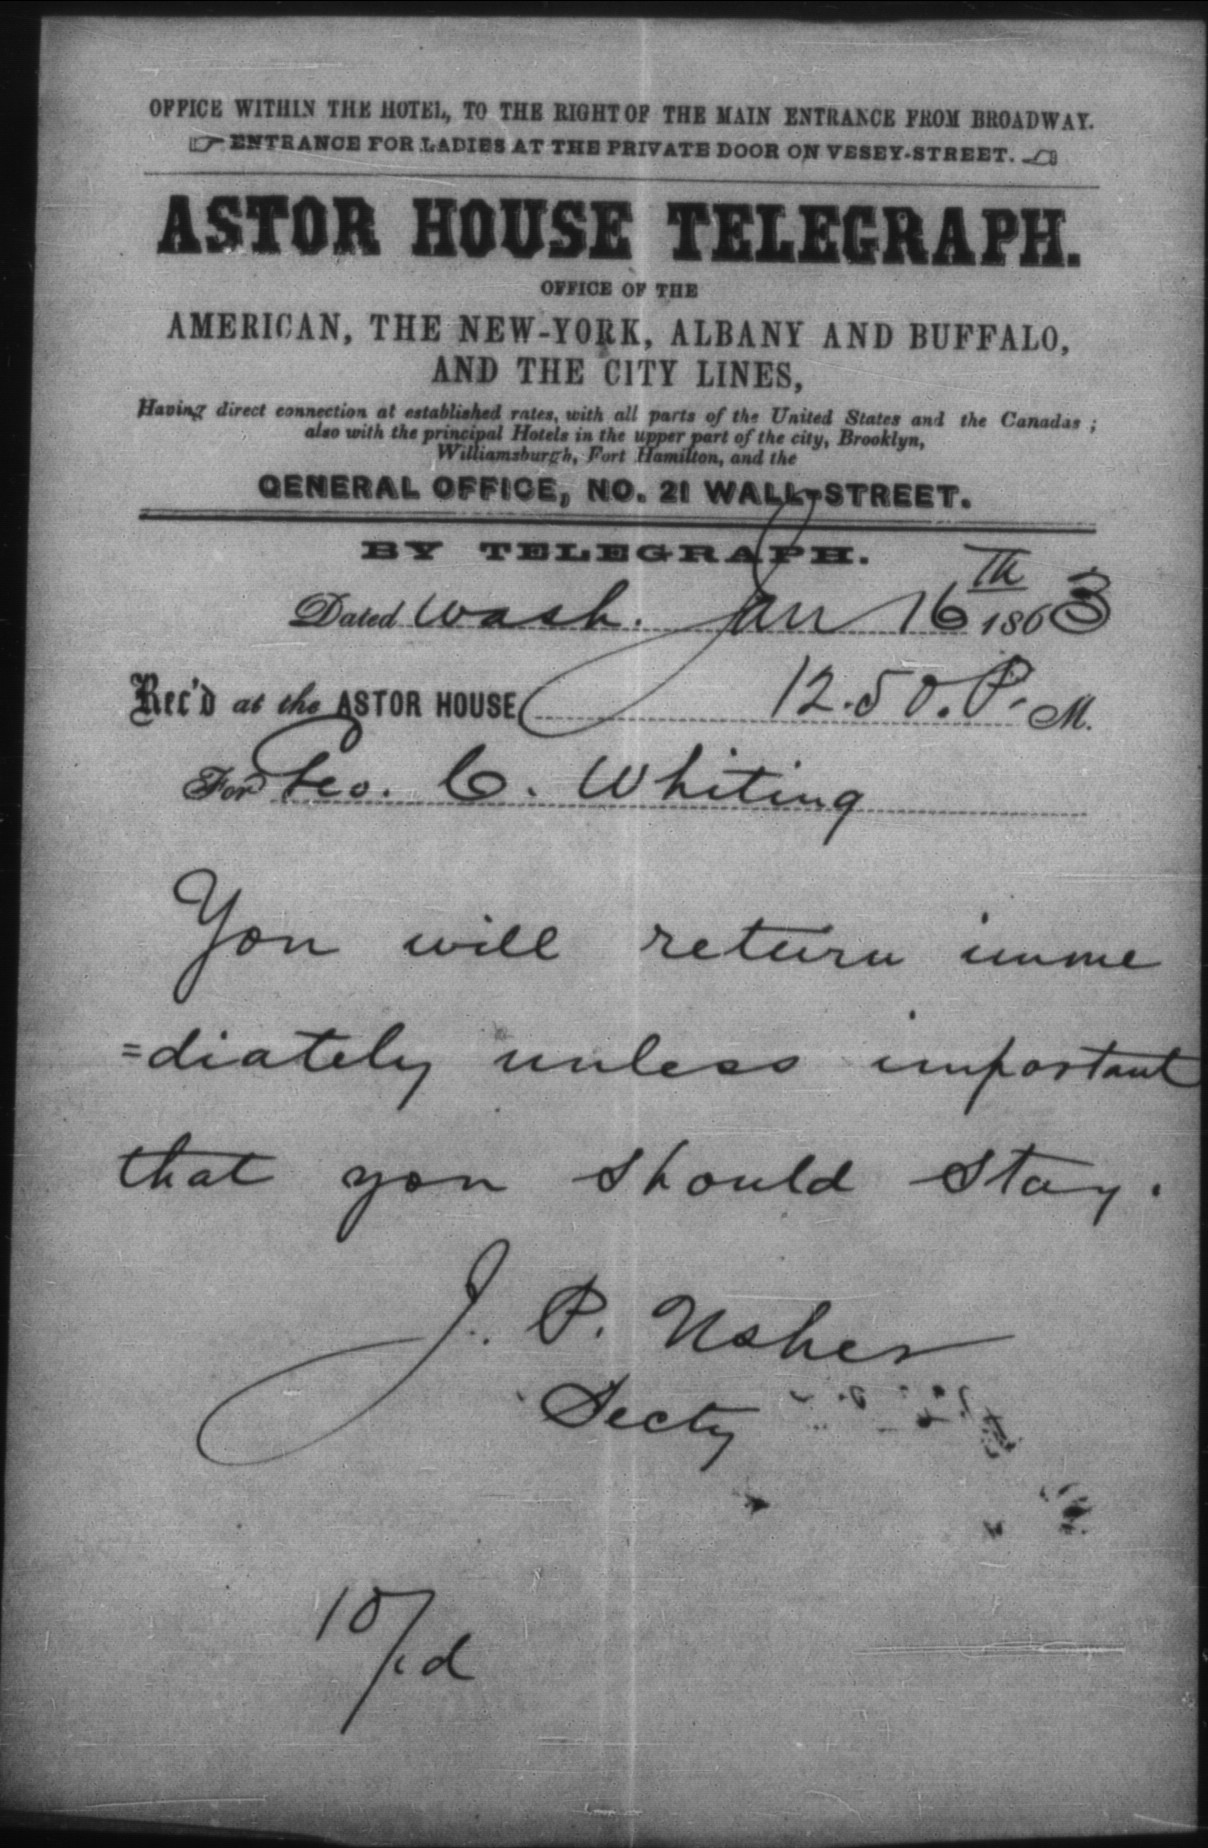 OFFICE WITHIN THE HOTEL, TO THE RIGHT OF THE MAIN ENTRANCE FROM BROADWAY.
ENTRANCE FOR LADIES AT THE PRIVATE DOOR ON VESEY-STREET.
ASTOR HOUSE TELEGRAPH.
OFFICE OF THE
AMERICAN, THE NEW-YORK, ALBANY AND BUFFALO,
AND THE CITY LINES,
Having direct connection at established rates, with all parts of the United States and the Canadas;
also with the principal Hotels in the upper part of the city, Brooklyn,
Williamsburgh, Fort Hamilton, and the
GENERAL OFFICE, NO. 21 WALL-STREET.
BY TELEGRAPH.
Dated Wash. Jan 16th 1863
Rec'd at the ASTOR HOUSE, 12.50.P. M.
For Geo. C. Whiting
You will return imme
=diately unless important
that you should stay.
J. P. Usher
Secty
10/